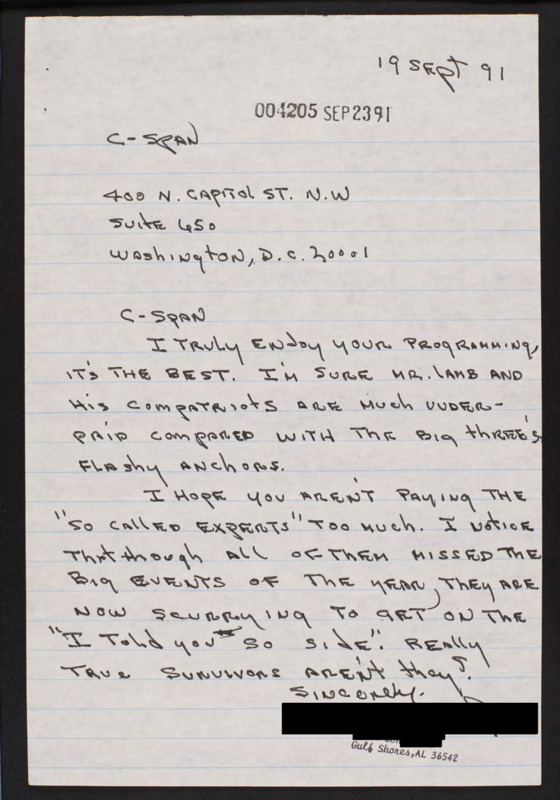 19 SEPT 91
004205 SEP 23 91
C-SPAN
400 N. CAPITOL ST. N.W
SUITE 650
WASHINGTON, D.C. 20001
C-SPAN
I TRULY ENJOY YOUR PROGRAMMING,
IT'S THE BEST. I'M SURE MR. LAMB AND
HIS COMPATRIOTS ARE MUCH UNDER-
PAID COMPARED WITH THE BIG THREE'S
FLASHY ANCHORS.
I HOPE YOU AREN'T PAYING THE
"SO CALLED EXPERTS" TOO MUCH. I NOTICE
THAT THOUGH ALL OF THEM MISSED THE
BIG EVENTS OF THE YEAR, THEY ARE
NOW SCURRYING TO GET ON THE
"I TOLD YOU SO SIDE". REALLY
TRUE SURVIVORS AREN'T THEY?
SINCERELY.
Gulf Shores, AL 36542